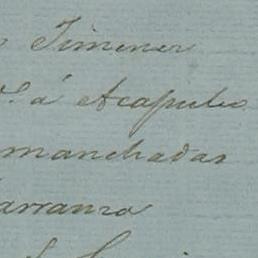 Jimenez
á Acapulco
manchadas
arranza